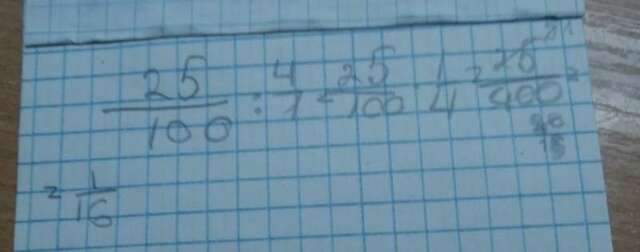 25/100 : 4/1 = 25/100 · 1/4 = 25/400 =
= 1/16